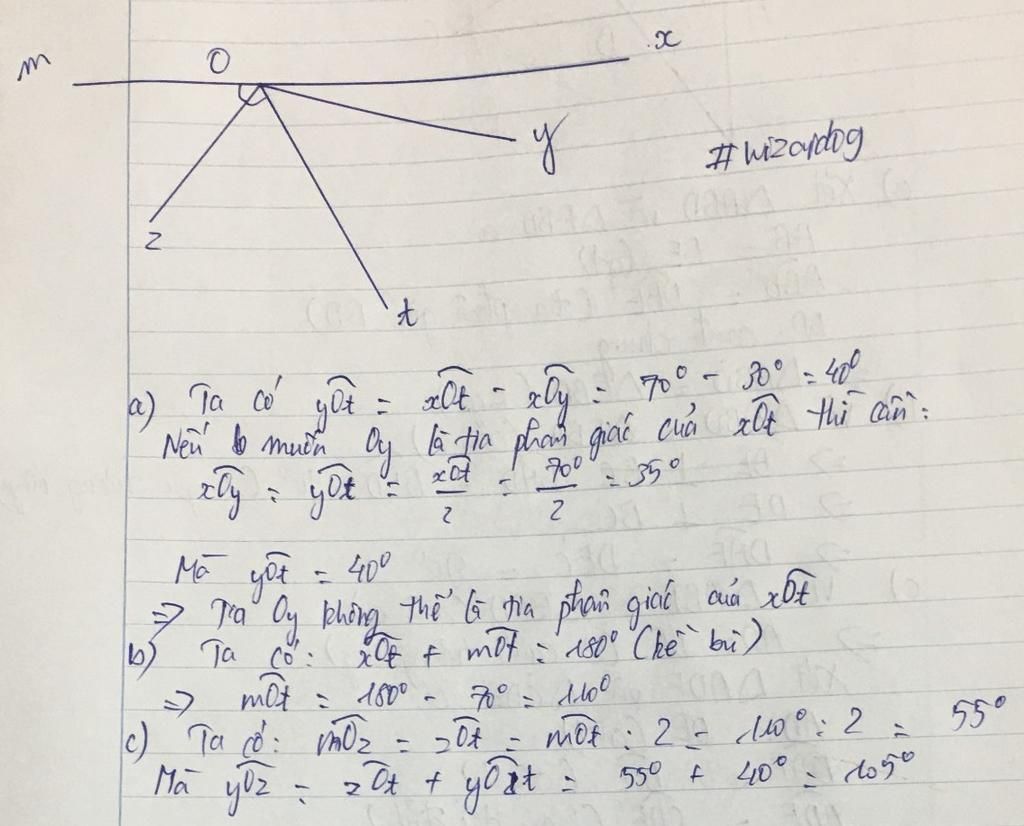 m O x
y
#wizardog
z
t
a) Ta có yOt = xOt - xOy = 70° - 30° = 40°
Nếu muốn Oy là tia phân giác của xOt thì cần:
xOy = yOt = xOt/2 = 70°/2 = 35°
Mà yOt = 40°
=> Tia Oy không thể là tia phân giác của xOt
b) Ta có: xOt + mOt = 180° (kề bù)
=> mOt = 180° - 70° = 110°
c) Ta có: mOz = zOt = mOt : 2 = 110° : 2 = 55°
Mà yOz = zOt + yOt = 55° + 40° = 105°